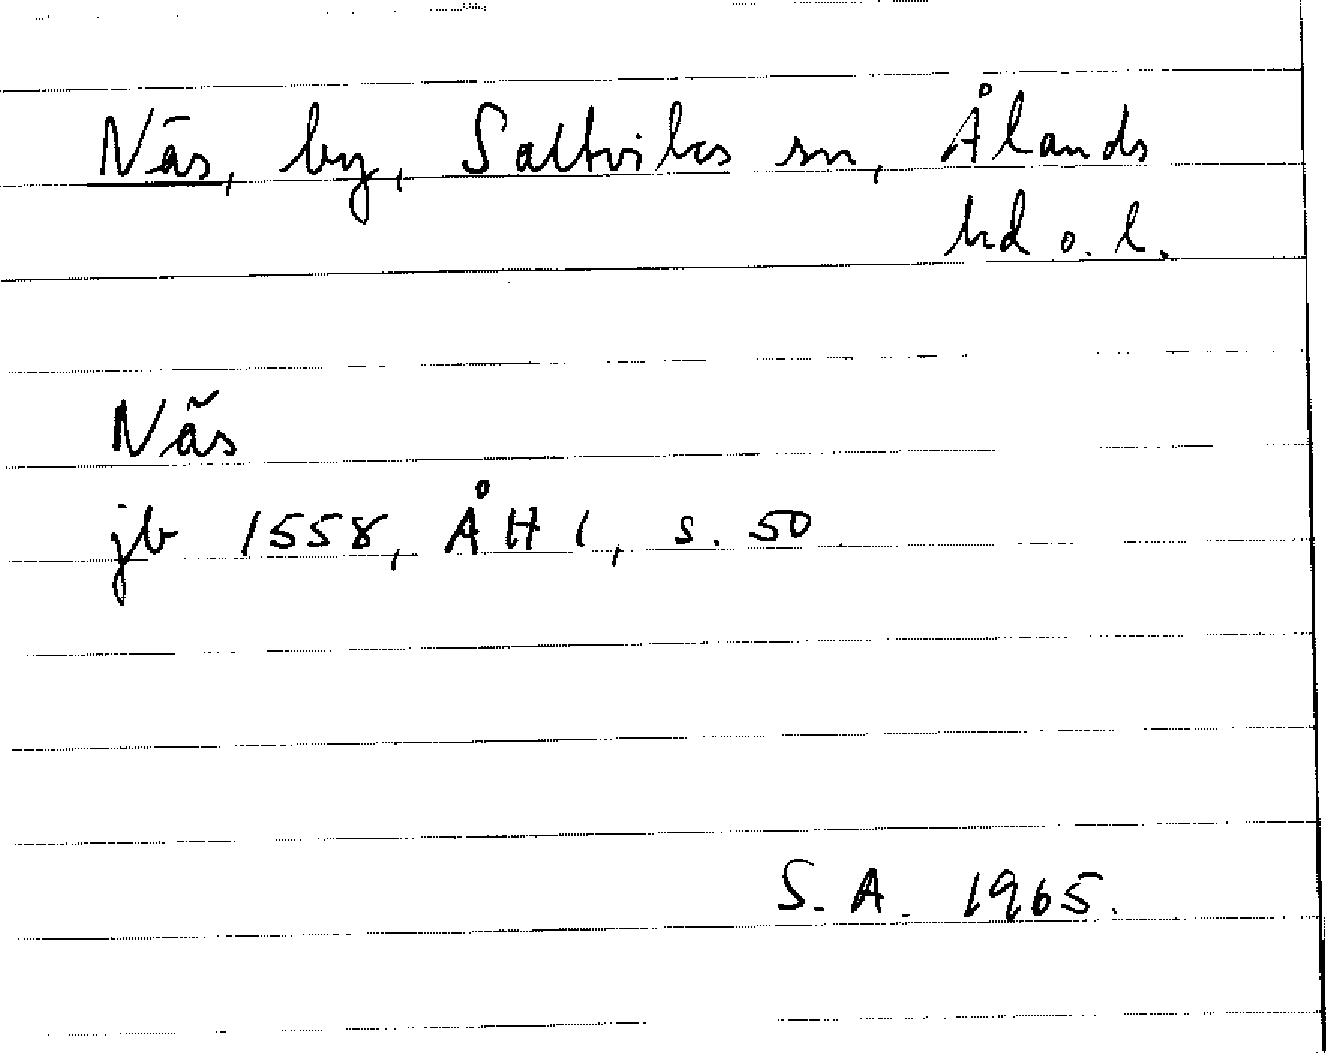 Näs, by, Saltviks sn, Ålands
hd o. l.
Näs
jb 1558, ÅH 1, s. 50
S. A. 1965.